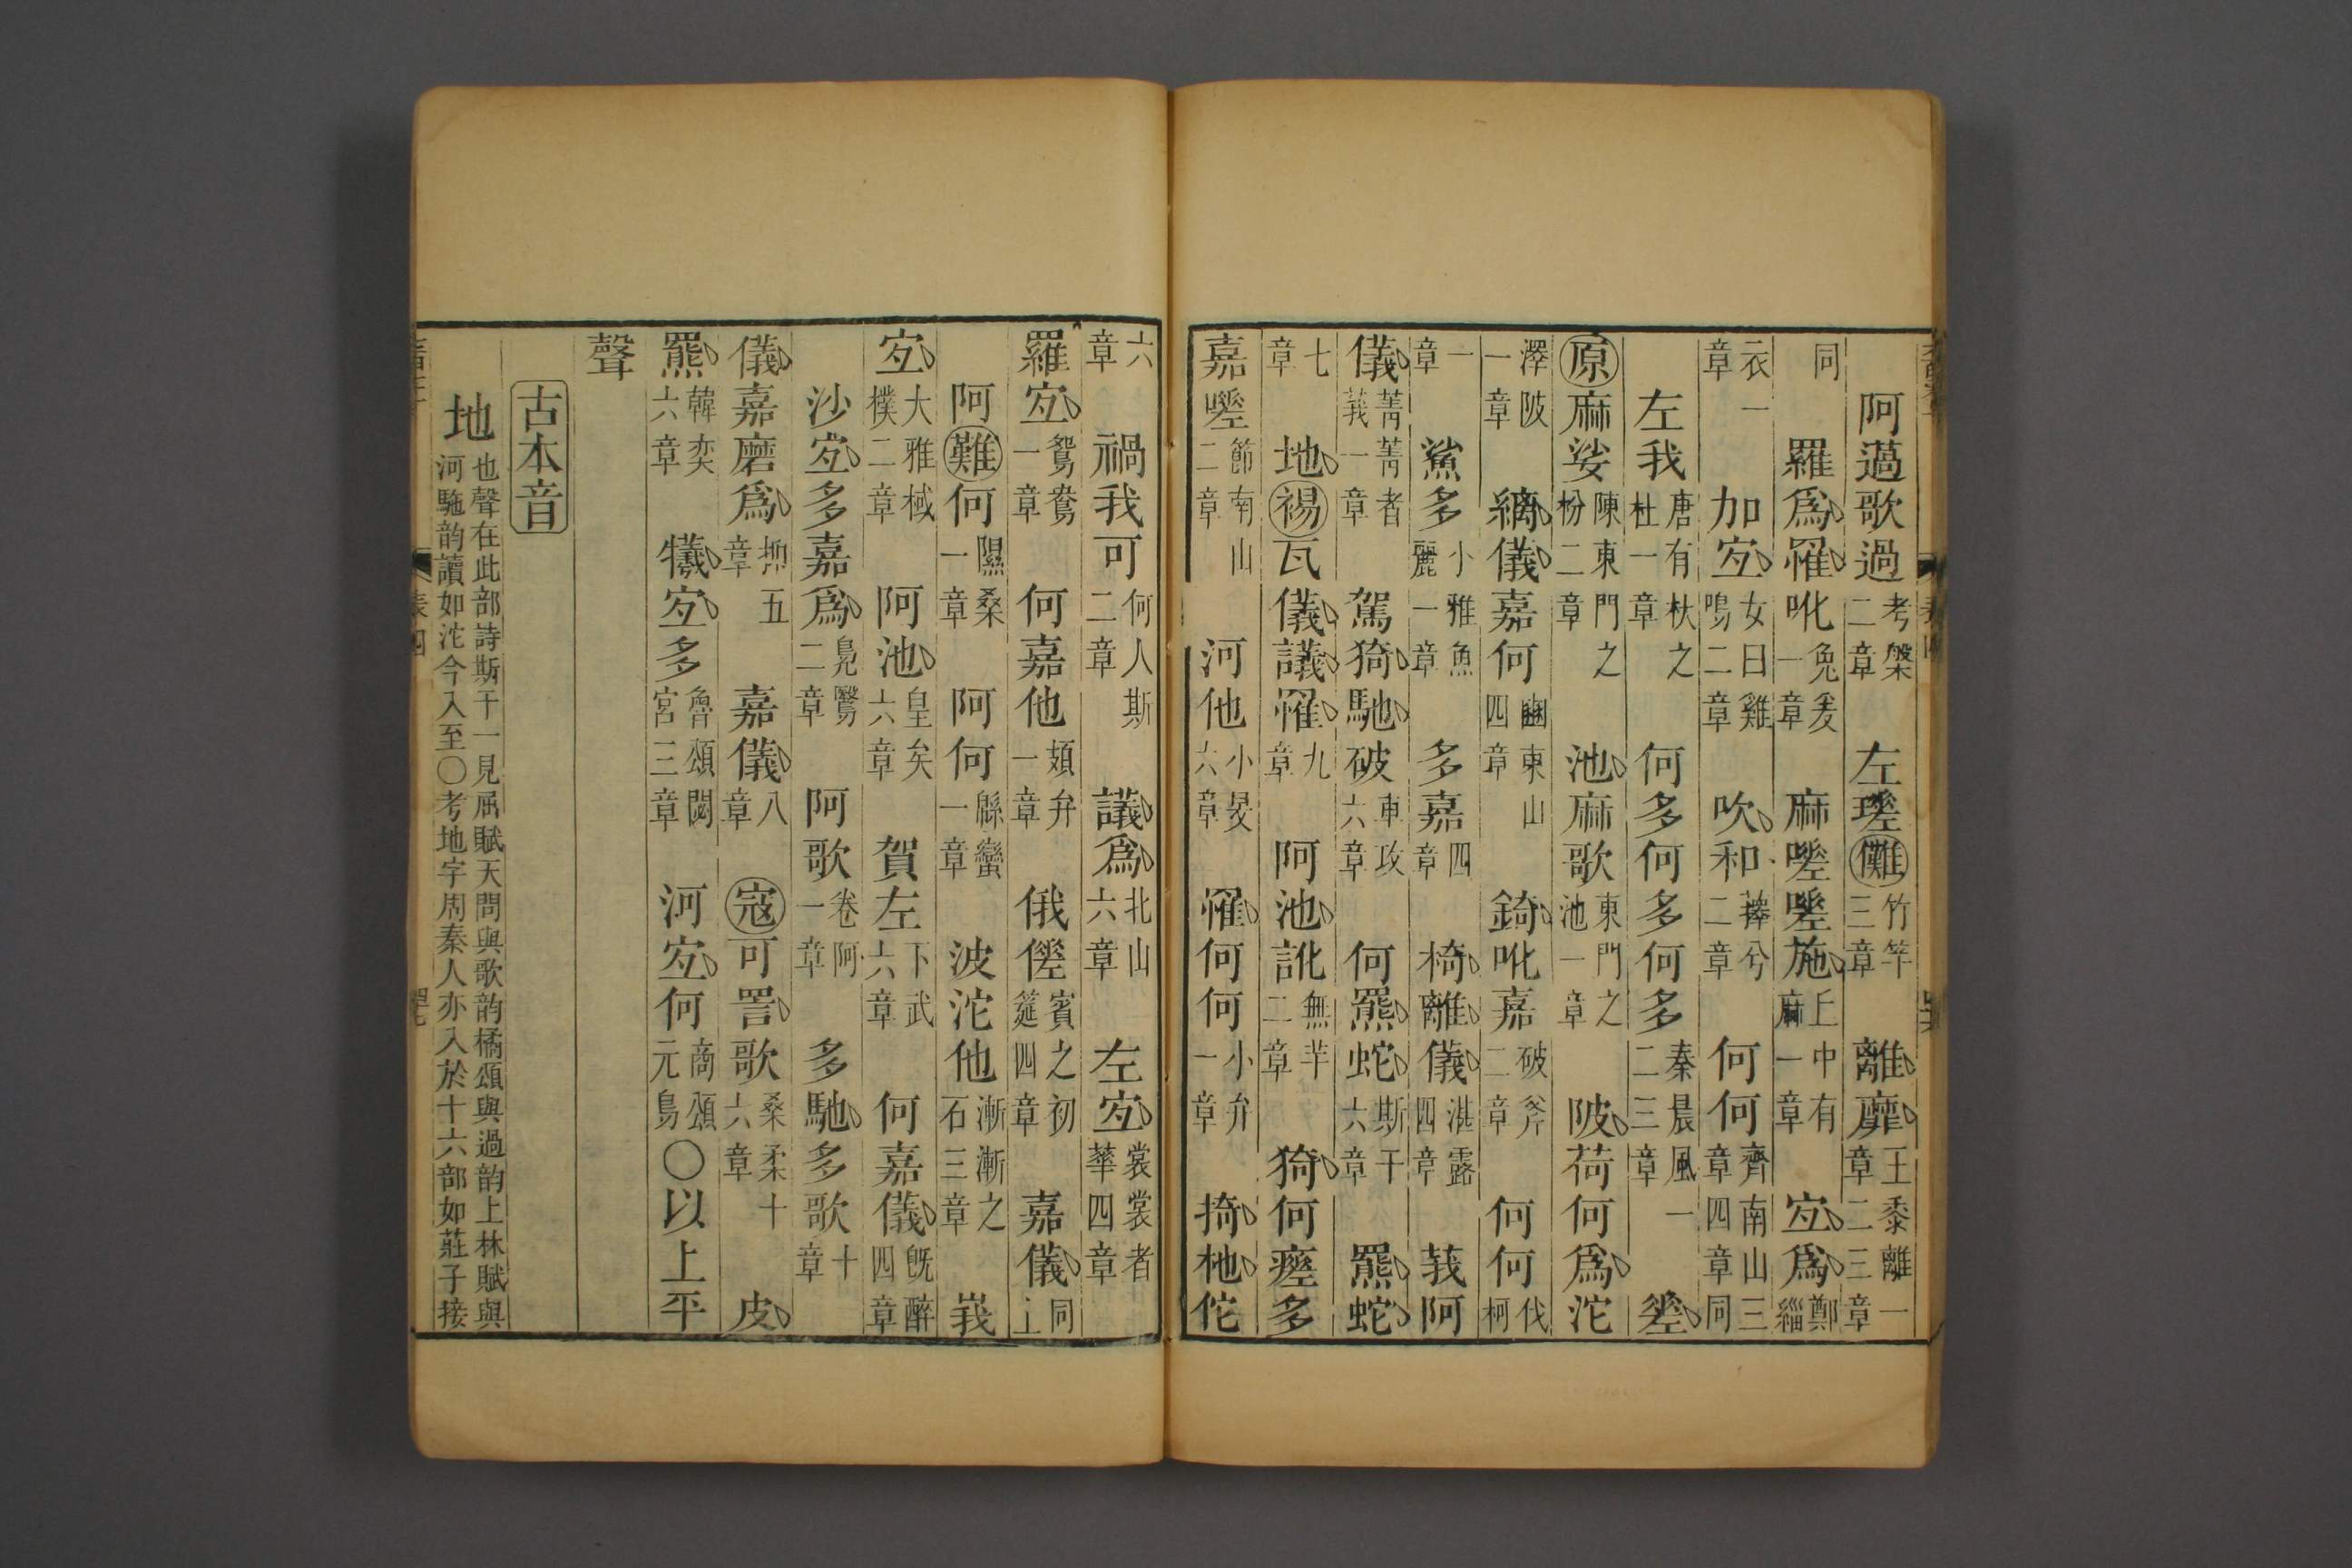 阿薖歌過考槃二章 左瑳儺竹竿三章 離靡王黍離一二三章
同 羅爲罹吪兔爰一章 麻嗟嗟施丘中有麻一章 宐爲鄭緇
衣一章 加宐女曰雞鳴二章 吹和蘀兮二章 何何齊南山三章四章同
左我唐有杕之杜一章 何多何多何多秦晨風一二三章 差
原麻娑陳東門之枌二章 池麻歌東門之池一章 陂荷何爲沱
澤陂一章 縭儀嘉何豳東山四章 錡吪嘉破斧二章 何何伐柯
一章 鯊多小雅魚麗一章 多嘉四章 椅離儀湛露四章 莪阿
儀菁菁者莪一章 駕猗馳破車攻六章 何羆蛇斯干六章 羆蛇
七章 地裼瓦儀議罹九章 阿池訛無羊二章 猗何瘥多
嘉嗟節南山二章 河他小旻六章 罹何何小弁一章 掎杝佗
六章 禍我可何人斯二章 議爲北山六章 左宐裳裳者華四章
羅宐鴛鴦一章 何嘉他頍弁一章 俄傞賓之初筵四章 嘉儀同上
阿難何隰桑一章 阿何緜蠻一章 波沱他漸漸之石三章 峩
宐大雅棫樸二章 阿池皇矣六章 賀左下武六章 何嘉儀旣醉四章
沙宐多嘉爲鳧鷖二章 阿歌卷阿一章 多馳多歌十章
儀嘉磨爲抑五章 嘉儀八章 寇可詈歌桑柔十六章 皮
羆韓奕六章 犧宐多魯頌閟宮三章 河宐何商頌元鳥○以上平
聲
古本音
地也聲在此部詩斯干一見屈賦天問與歌韵橘頌與過韵上林賦與河騐韵讀如沱今入至○考地字周秦人亦入於十六部如莊子接